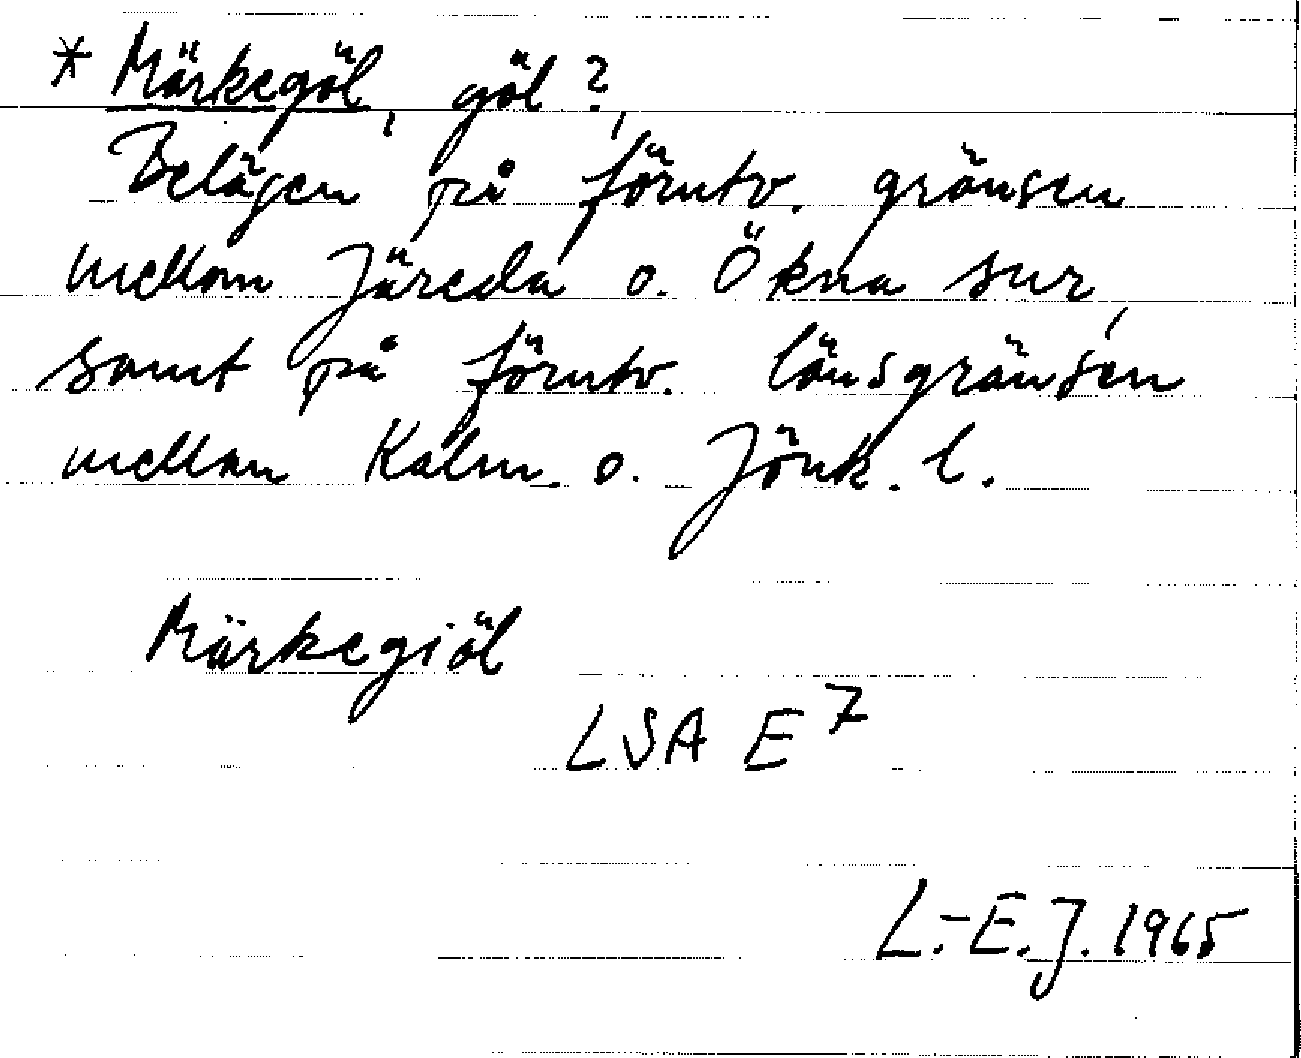 * Märkegöl, göl?,
Belägen på förutv. gränsen
mellan Järeda o. Ökna snr,
samt på förutv. länsgränsen
mellan Kalm. o. Jönk. l.
Märkegiöl
LSA E 7
L.-E. J. 1965